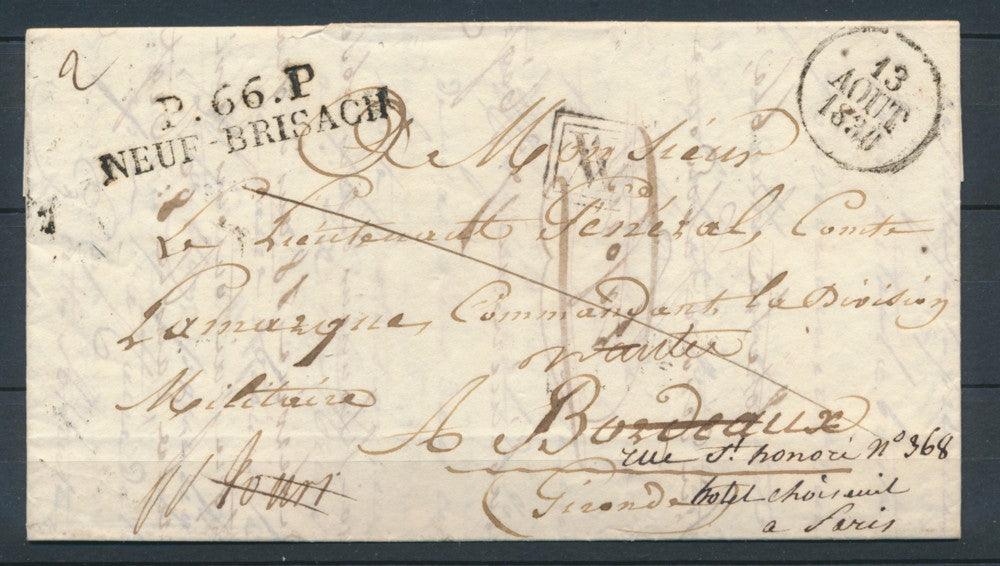 2
P. 66. P
NEUF-BRISACH
13
AOUT
1830
A Monsieur
Le Lieutenant Général, Comte
Lamarque, Commandant la Division
Militaire
A Bordeaux
rue St honoré n° 368
Gironde hotel choiseuil
a Paris